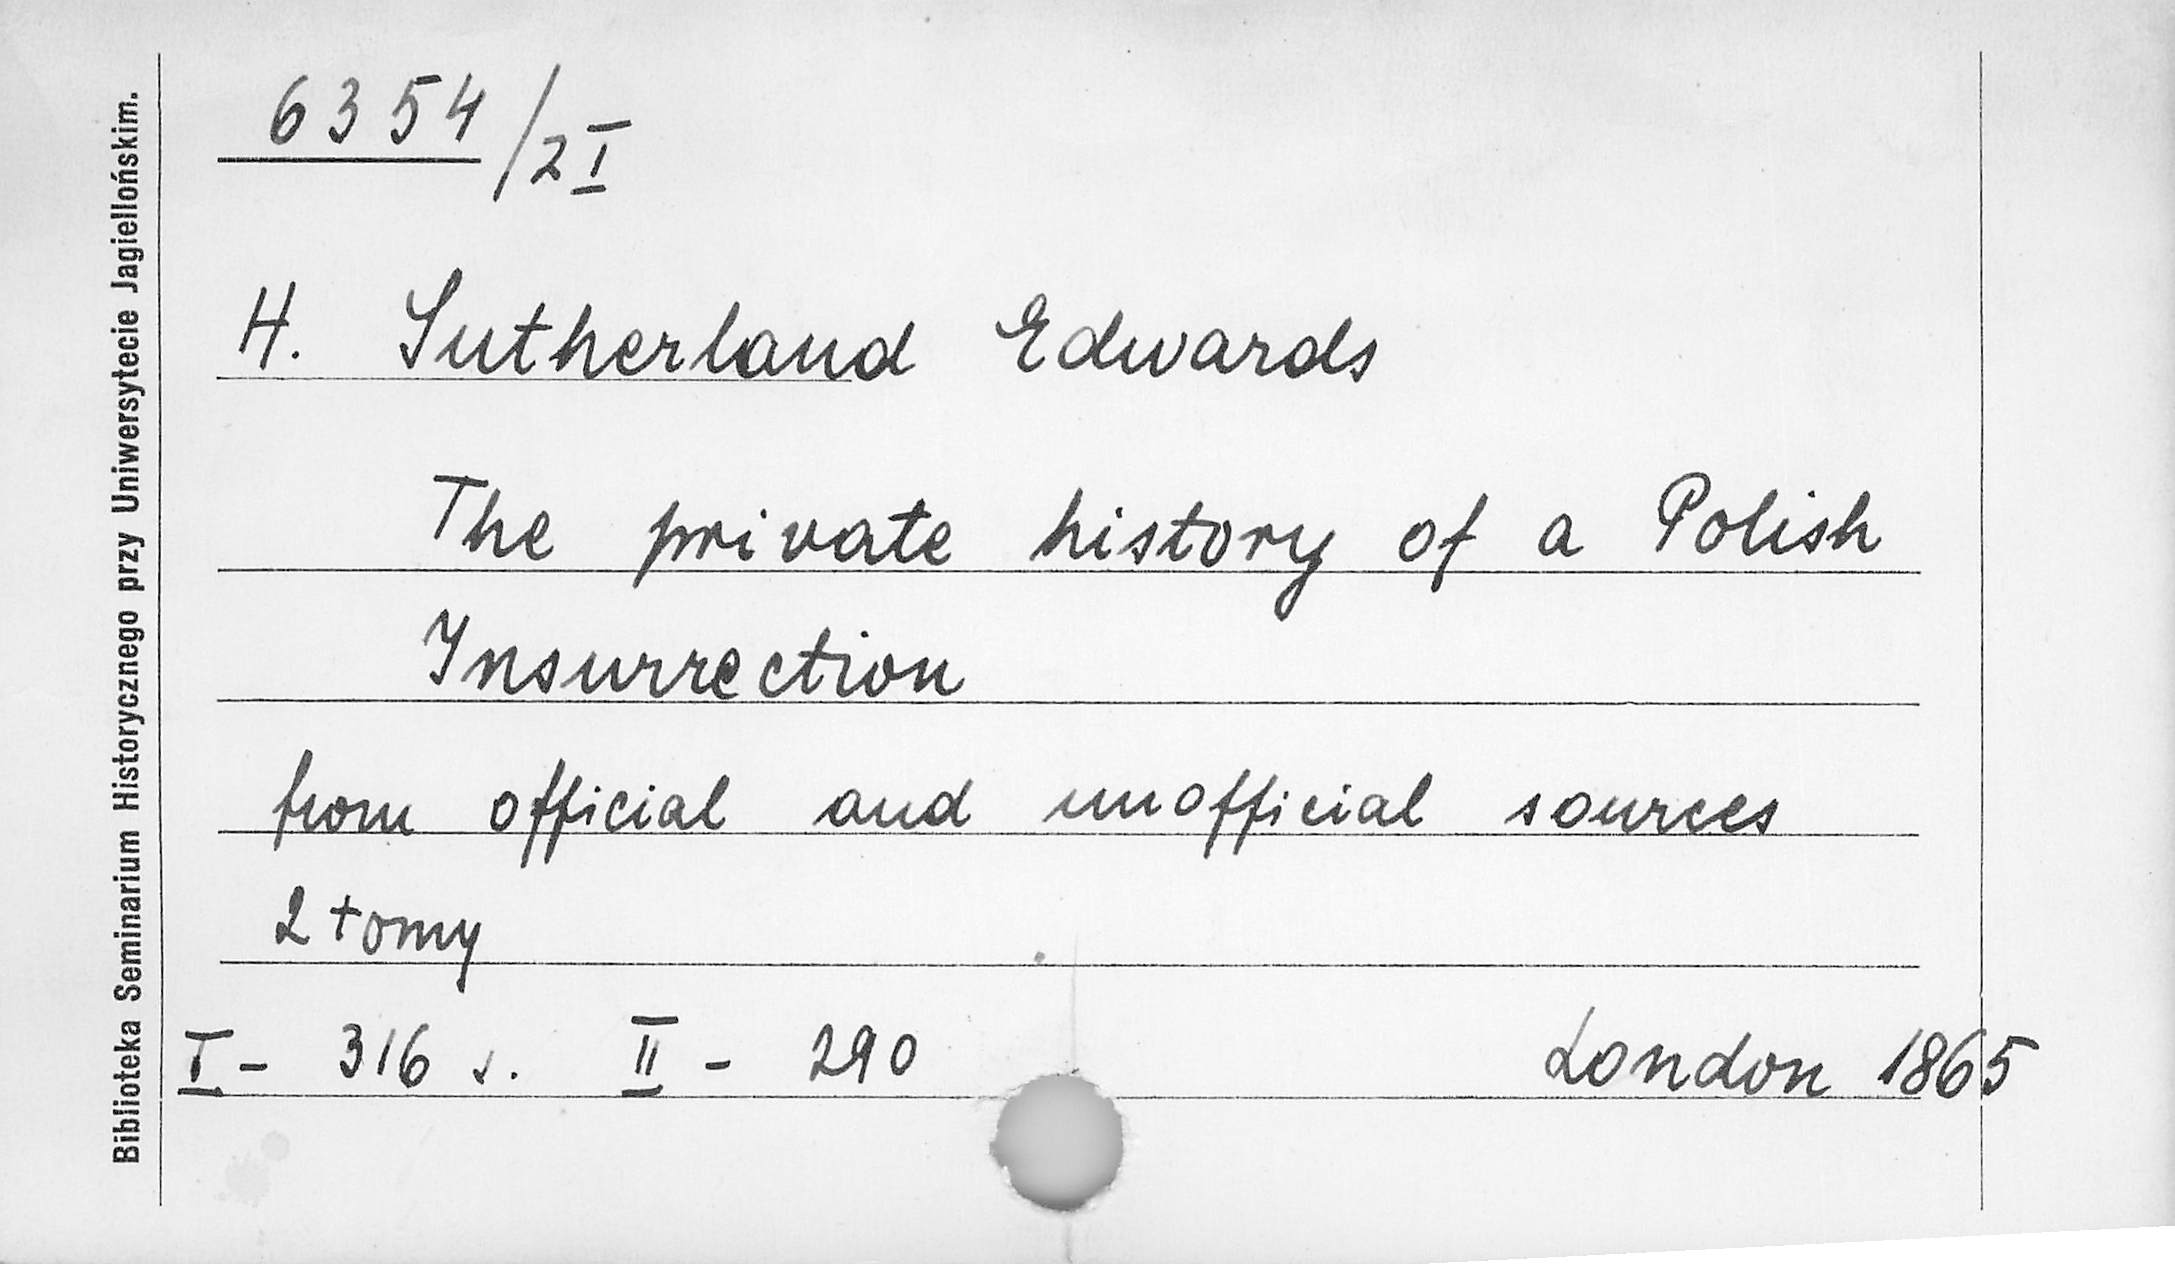 Biblioteka Seminarium Historycznego przy Uniwersytecie Jagiellońskim.
6354/2 I
H. Sutherland Edwards
The private history of a Polish
Insurrection
from official and unofficial sources
2 tomy
I - 316 s. II - 290 London 1865